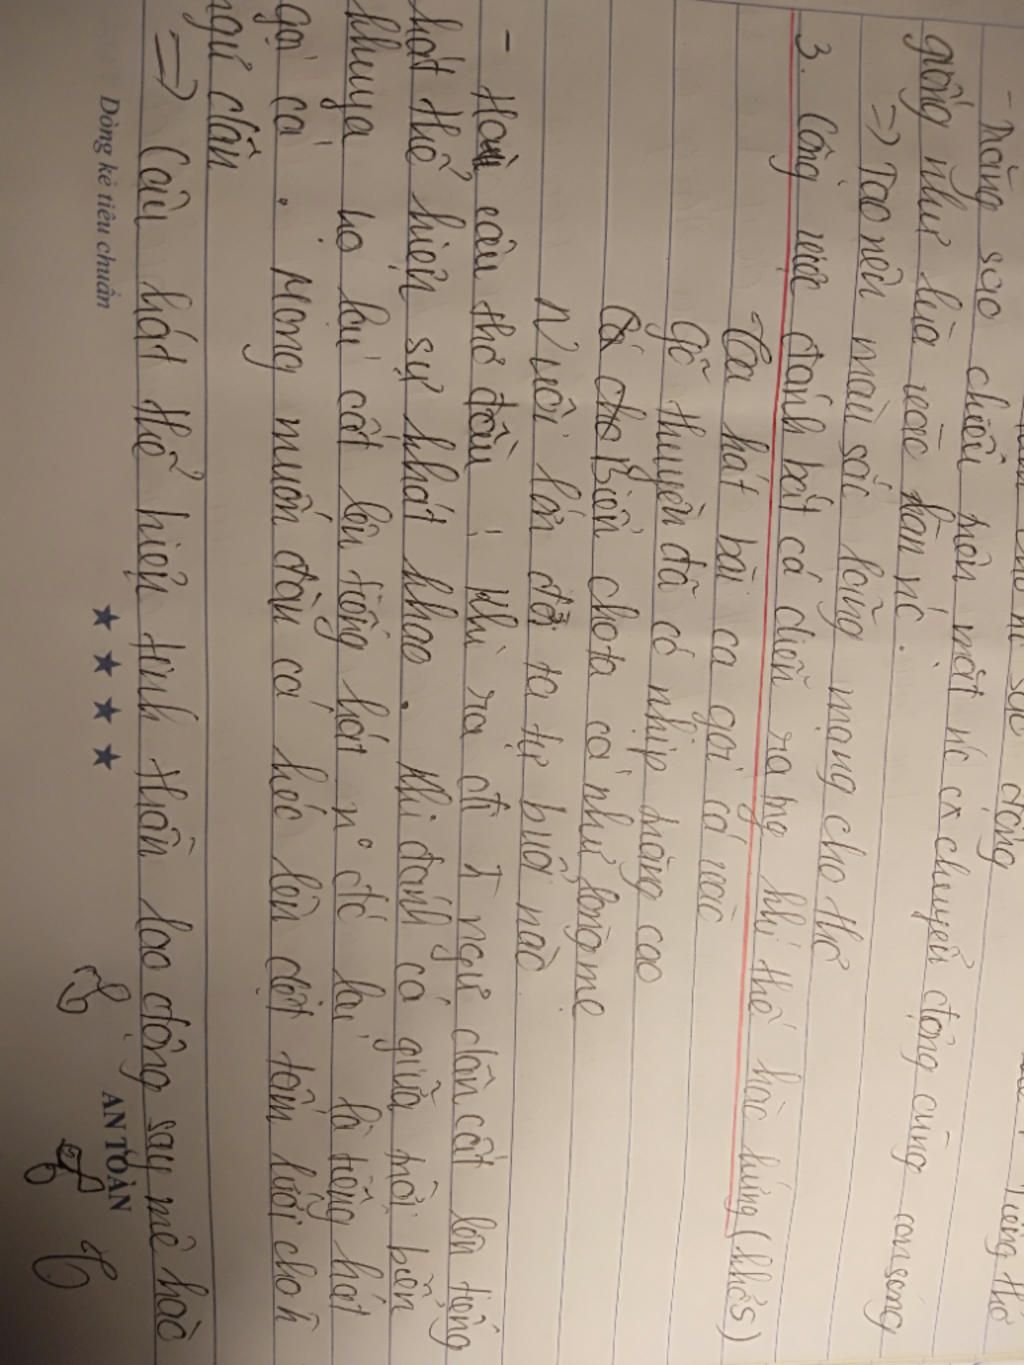 động
Tiếng thơ
- trăng sao chiếu trên mặt nc cx chuyển động cùng con sóng
giống như lùa vào đàn nc.
=> Tạo nên màu sắc lãng mạng cho thơ
3. Công việc đánh bắt cá diễn ra mg khí thế hào hứng (khổ 5)
- Ta hát bài ca gọi cá vào
Gõ thuyền đã có nhịp trăng cao
Cá cho Biển cho ta cá như lòng mẹ
Nuôi lớn đời ta tự buổi nào
- Hai câu thơ đầu: khi ra đi ngư dân cất lên tiếng
hát thể hiện sự khát khao. Khi đánh cá giữa trời biển
khuya họ lại cất lên tiếng hát nơ đó lại là tiếng hát
gọi cá. Mong muốn đàn cá hãc lên dệt tấm lưới cho n
ngư dân
=> Câu hát thể hiện tinh thần lao động say mê hào
Dòng kẻ tiêu chuẩn ★ ★ ★ ★ AN TOÀN